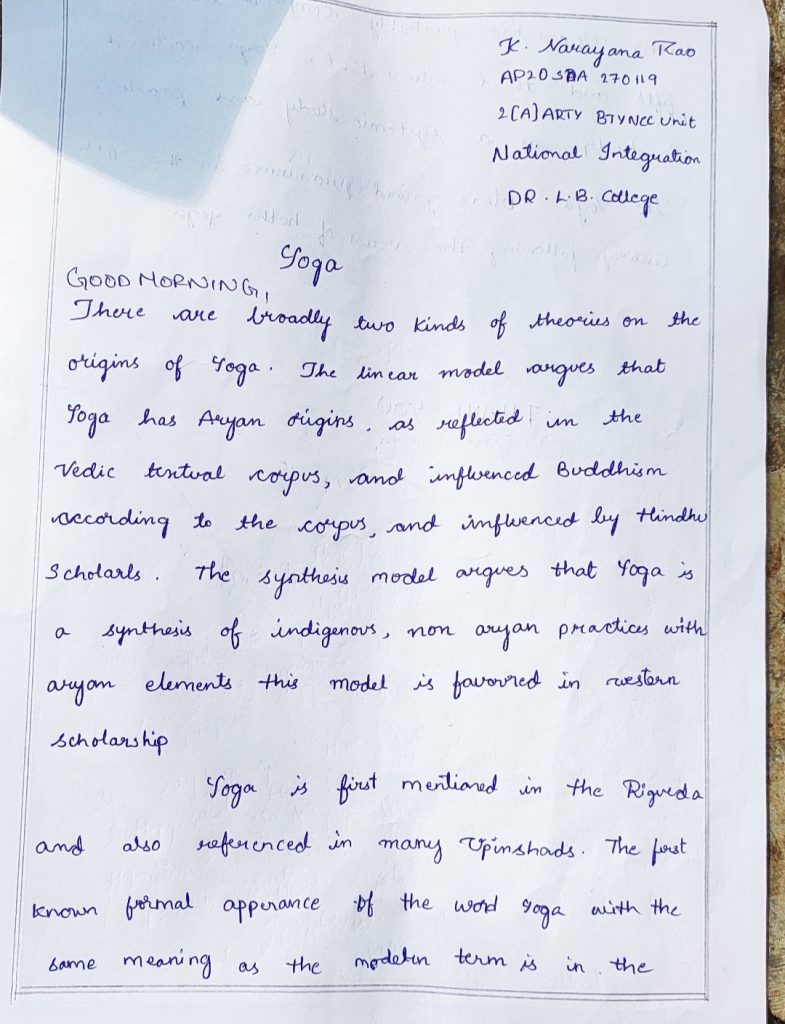 K. Narayana Rao
AP20SDA 270119
2(A) ARTY BTY NCC Unit
National Integration
DR. L.B. College
Yoga
GOOD MORNING,
There are broadly two kinds of theories on the
origins of Yoga. The linear model argues that
Yoga has Aryan origins, as reflected in the
Vedic textual corpus, and influenced Buddhism
according to the corpus, and influenced by Hindhu
Scholarls. The synthesis model argues that Yoga is
a synthesis of indigenous, non aryan practices with
aryan elements this model is favoured in western
scholarship
Yoga is first mentioned in the Rigveda
and also referenced in many Upinshads. The first
known formal apperance of the word yoga with the
same meaning as the modern term is in the